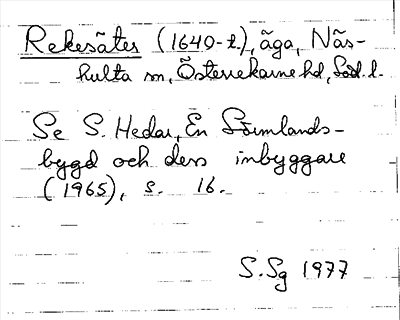 Rekesäter (1640-t.), äga, Näs-
hulta sn, Österrekarne hd, Söd. l.
Se S. Hedar, En Sörmlands-
bygd och dess inbyggare
(1965), s. 16.
S.Sg 1977